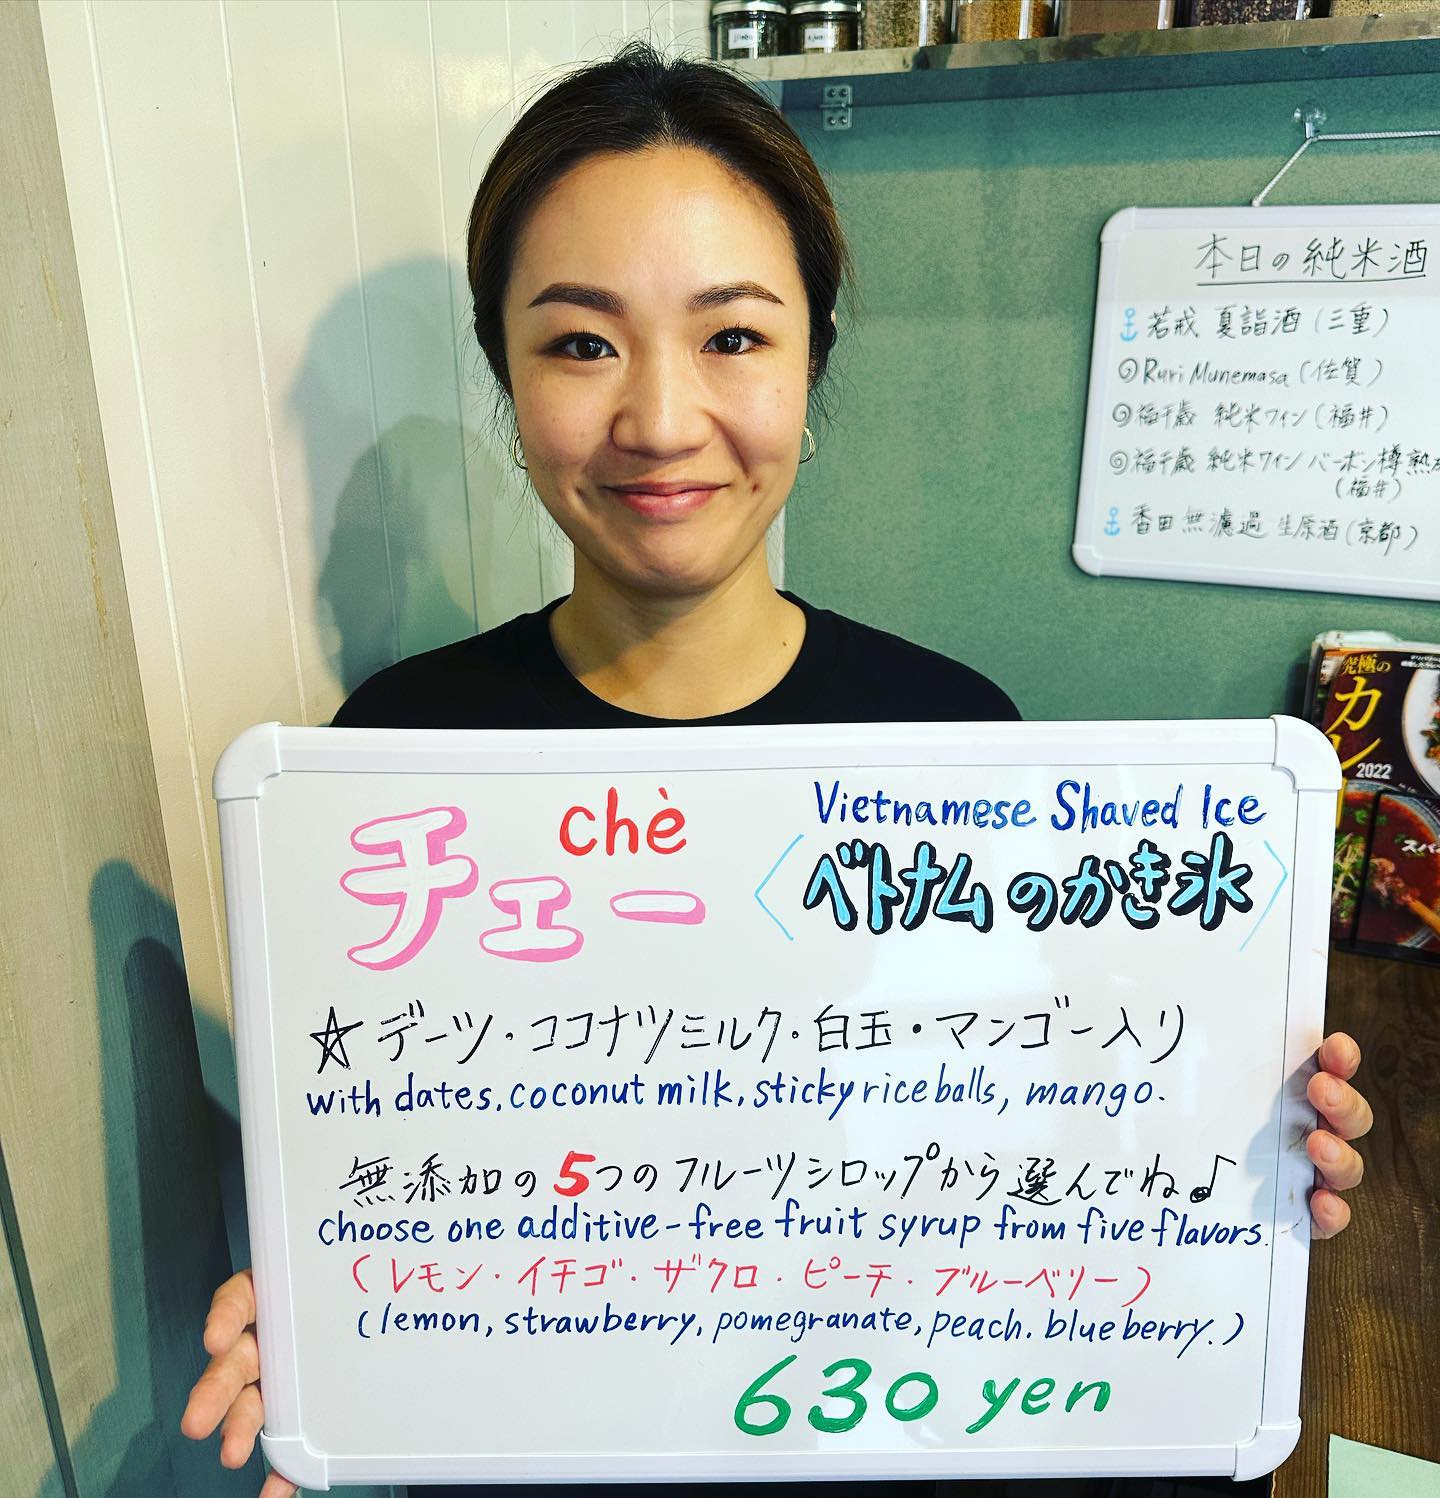 本日の純米酒
若戎 夏詣酒 (三重)
Ruri Munemasa (佐賀)
福千歳 純米ワイン (福井)
福千歳 純米ワイン バーボン樽熟
(福井)
香田 無濾過 生原酒 (京都)
究極の
カレー
2022
スパ
chè
チェー
Vietnamese Shaved Ice
〈ベトナムのかき氷〉
☆デーツ・ココナツミルク・白玉・マンゴー入り
with dates, coconut milk, sticky rice balls, mango.
無添加の5つのフルーツシロップから選んでね♪
choose one additive-free fruit syrup from five flavors.
(レモン・イチゴ・ザクロ・ピーチ・ブルーベリー)
(lemon, strawberry, pomegranate, peach. blueberry.)
630 yen